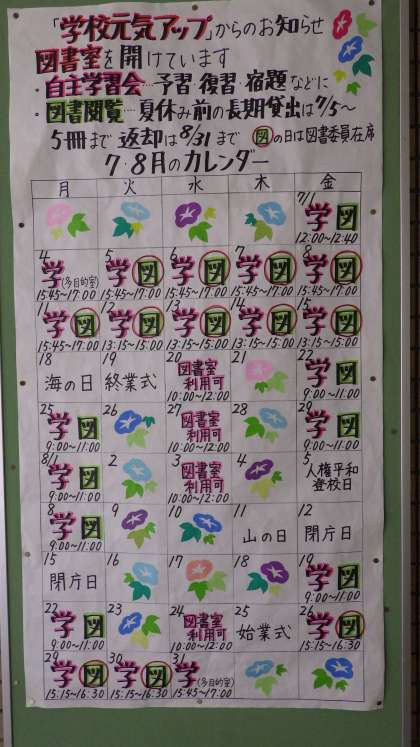 「学校元気アップ」からのお知らせ
図書室を開けています
・自主学習会…予習・復習・宿題などに
・図書閲覧…夏休み前の長期貸出は7/5〜
5冊まで 返却は8/31まで 図の日は図書委員在席
7・8月のカレンダー
月 火 水 木 金
7/1 学図 12:00~12:40
4 学(多目的室) 15:45~17:00
5 学図 15:45~17:00
6 学図 15:45~17:00
7 学図 15:45~17:00
8 学図 15:45~17:00
11 学図 15:45~17:00
12 学図 13:15~15:00
13 学図 13:15~15:00
14 学図 13:15~15:00
15 学図 13:15~15:00
18 海の日
19 終業式
20 図書室利用可 10:00~12:00
21
22 学図 9:00~11:00
25 学図 9:00~11:00
26
27 図書室利用可 10:00~12:00
28
29 学図 9:00~11:00
8/1 学図 9:00~11:00
2
3 図書室利用可 10:00~12:00
4
5 人権平和登校日
8 学図 9:00~11:00
9
10
11 山の日
12 閉庁日
15 閉庁日
16
17
18
19 学図 9:00~11:00
22 学図 9:00~11:00
23
24 図書室利用可 10:00~12:00
25 始業式
26 学図 15:15~16:30
29 学図 15:15~16:30
30 学図 15:15~16:30
31 学(多目的室) 15:45~17:00